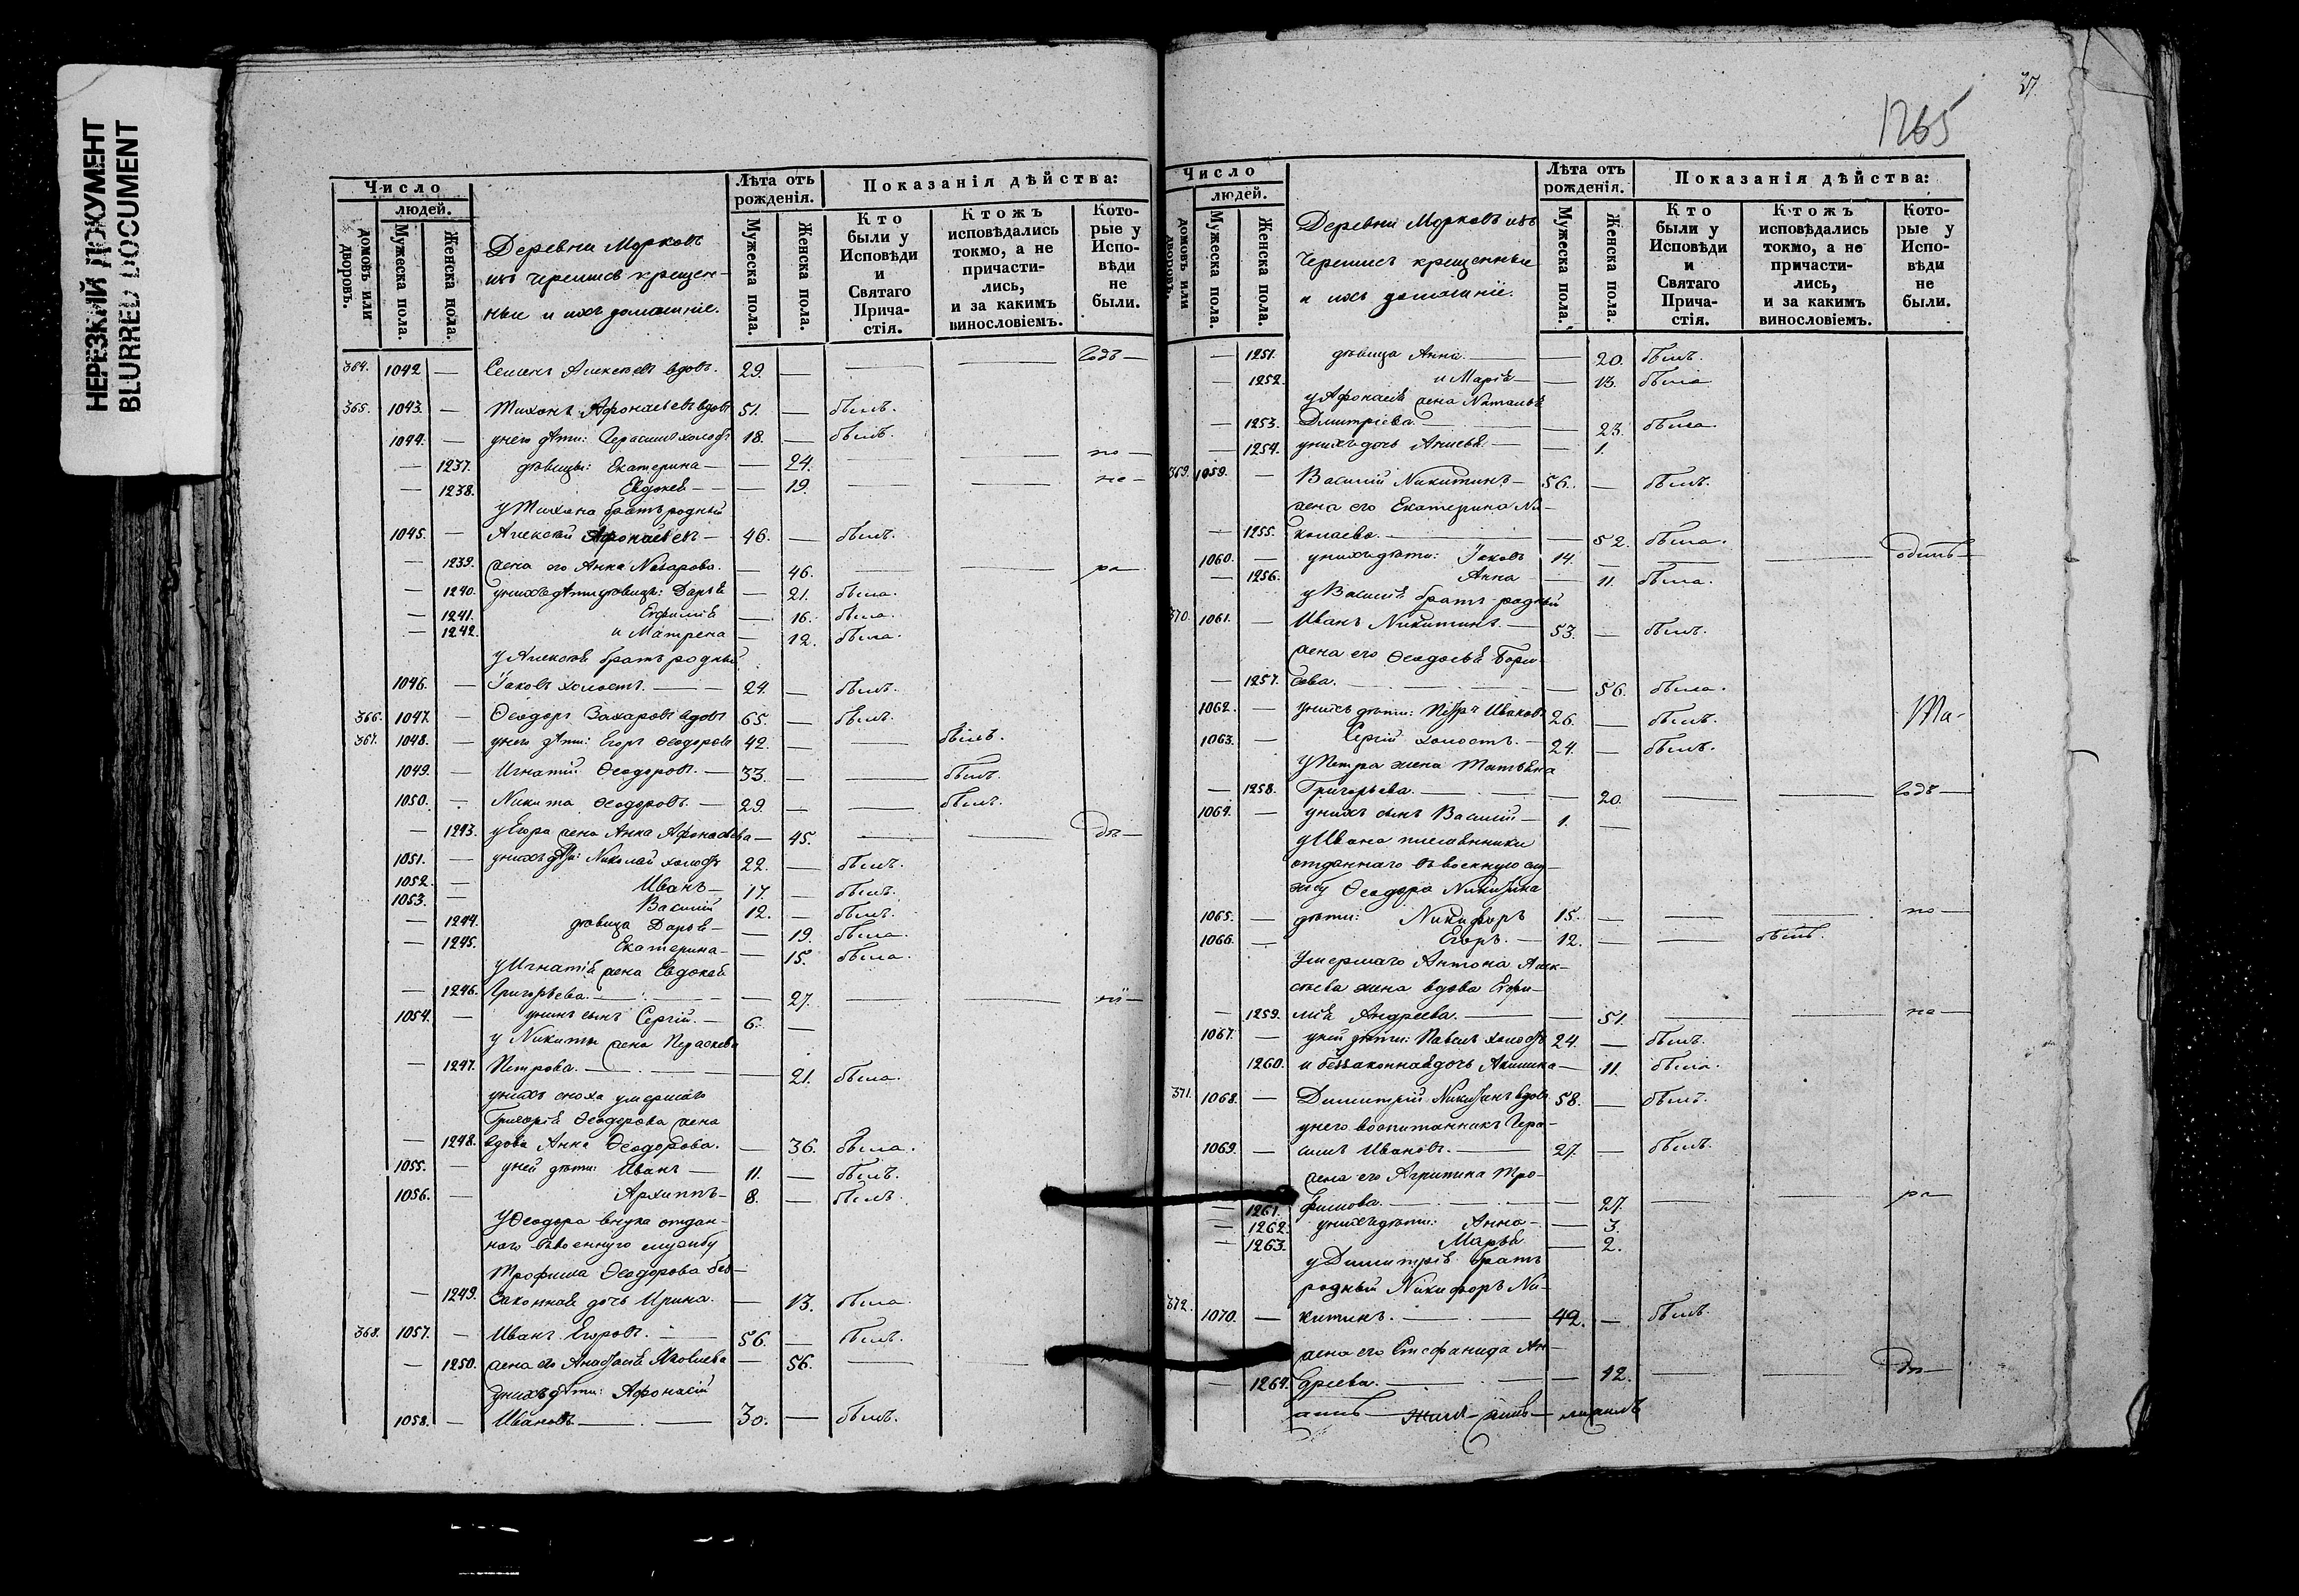 НЕРЕЗКИЙ ДОКУМЕНТ
BLURRED DOCUMENT
37.
1265
Число
людей.
домовъ или дворовъ.
Мужеска пола.
Женска пола.
Деревни Морковъ
изъ черемисъ крещен-
ные и ихъ домашніе.
Лѣта отъ рожденія.
Мужеска пола.
Женска пола.
Показанія дѣйства:
Кто были у Исповѣди и Святаго Прича-стія.
Ктожъ исповѣдались токмо, а не причасти-лись, и за какимъ винословіемъ.
Кото-рые у Испо-вѣди не были.
364. 1042 — Семенъ Алексѣевъ вдовъ. 29. —
365. 1043. — Тихонъ Афонасьевъ вдовъ 51. — былъ.
1044. — у него дѣти: Герасимъ холостъ 18. — былъ.
— 1237. дѣвицы: Екатерина — — 24. по —
— 1238. Евдокея — — 19. не —
у Тихона братъ родный
1045. — Алексѣй Афонасьевъ — 46. — былъ.
— 1239. жена его Анна Назарова. — 46. ра —
— 1240. у нихъ дѣти дѣвицы: Дарья — 21. была.
— 1241. Евфимія — 16. была.
— 1242. и Матрена — 12. была.
у Алексѣя братъ родный
1046. — Іаковъ холостъ. — 24. — былъ.
366. 1047. — Ѳеодоръ Захаровъ вдовъ 65. — былъ.
367. 1048. — у него дѣти: Егоръ Ѳеодоровъ 42. — — былъ.
1049. — Игнатій Ѳеодоровъ. — 33. — былъ.
1050. — Никита Ѳеодоровъ. — 29. — былъ.
— 1243. у Егора жена Анна Афонасьева — 45.
1051. — у нихъ дѣти: Николай холостъ 22. — былъ.
1052. — Иванъ — 17. — былъ.
1053. — Василій 12. — былъ.
— 1244. дѣвица Дарья — — 19. была.
— 1245. Екатерина — — 15. была.
у Игнатія жена Евдокея
— 1246. Григорьева. — — 27.
1054. — у нихъ сынъ Сергій. — 6. —
у Никиты жена Параскева
— 1247. Петрова. — — 21. была.
у нихъ сноха умершаго
Григорія Ѳеодорова жена
— 1248. вдова Анна Ѳеодорова. — 36. была.
1055. — у ней дѣти: Иванъ — 11. — былъ.
1056. — Архиппъ — 8. — былъ.
у Ѳеодора внука отдан-
наго въ военную службу
Трофима Ѳеодорова без-
— 1249. законная дочь Ирина. — 13. была.
368. 1057. — Иванъ Егоровъ. — 56. — былъ.
— 1250. жена его Анастасія Яковлева — 56. —
у нихъ дѣти: Афонасій
1058. — Ивановъ — 30. — былъ.
Число
людей.
домовъ или дворовъ.
Мужеска пола.
Женска пола.
Деревни Морковъ изъ
Черемисъ крещенные
и ихъ домашніе.
Лѣта отъ рожденія.
Мужеска пола.
Женска пола.
Показанія дѣйства:
Кто были у Исповѣди и Святаго Прича-стія.
Ктожъ исповѣдались токмо, а не причасти-лись, и за какимъ винословіемъ.
Кото-рые у Испо-вѣди не были.
— 1251. дѣвица Анна. — — 20. былъ.
— 1252. и Марія — — 13. была
у Афонасія жена Наталья
— 1253. Дмитріева. — — 23. была.
— 1254. у нихъ дочь Анисья. — 1.
369. 1059. — Василій Никитинъ — 56. — былъ.
жена его Екатерина Ни-
— 1255. колаева. — 52. была.
1060. — у нихъ дѣти: Іаковъ 14. —
— 1256. Анна — 11. была.
у Василія братъ родный
370. 1061. — Иванъ Никитинъ. — 53. — былъ.
жена его Ѳеодосья Бори-
— 1257. сова. — — 56. была.
1062. — у нихъ дѣти: Петръ Ивановъ 26. — былъ.
1063. — Сергій холостъ. — 24. — былъ.
у Петра жена Татьяна
— 1258. Григорьева. — — 20.
1064. — у нихъ сынъ Василій — 1. —
у Ивана племянники
отданнаго въ военную слу-
жбу Ѳеодора Никитина
1065. — дѣти: Никифоръ 15. — по —
1066. — Егоръ. — 12. — — былъ.
умершаго Антона Алек-
сѣева жена вдова Евфи-
— 1259. мія Андреева. — — 51. на —
1067. — у ней дѣти: Павелъ холостъ 24. — былъ.
1260. и беззаконная дочь Акилина — 11. была.
371. 1068. — Димитрій Никитинъ вдовъ 58. — былъ.
у него воспитанникъ Гера-
1069. — симъ Ивановъ. — 27. — былъ.
жена его Агрипина Тро-
— 1261. фимова. — 27. ра —
— 1262. у нихъ дѣти: Анна — — 3.
— 1263. Марья — 2.
у Димитрія братъ
родный Никифоръ Ни-
372. 1070. — китинъ. — 49. — былъ.
жена его Стефанида Ан-
— 1264. дреева. — — 42.